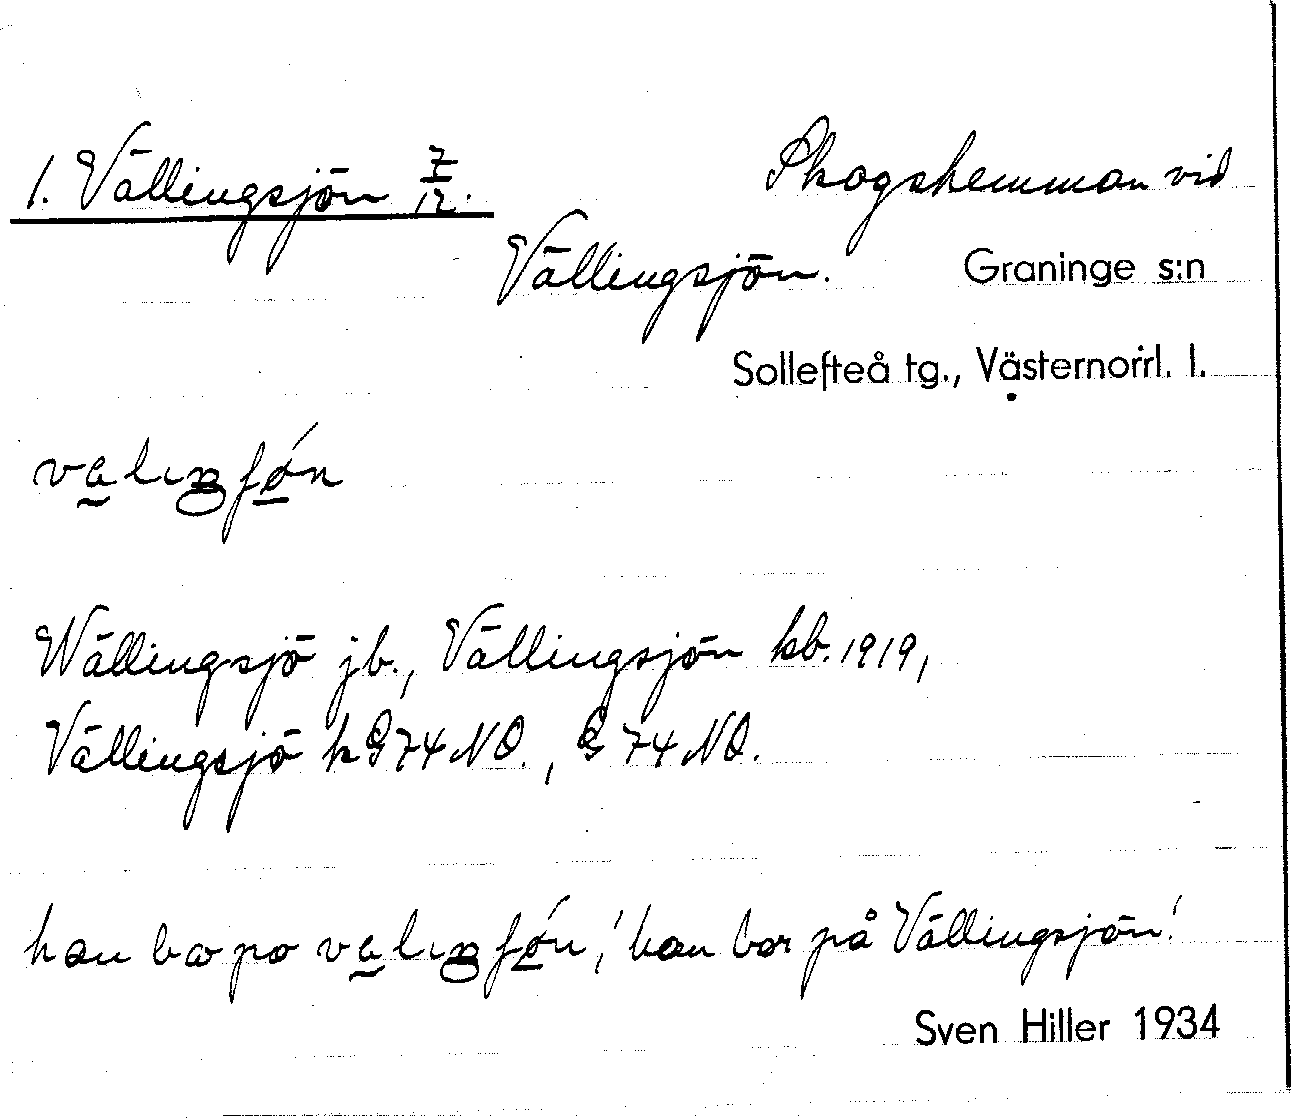 1. Vällingsjön 7/12. Skogshemman vid
Vällingsjön. Graninge s:n
Sollefteå tg., Västernorrl. l.
Wällingsjö jb., Vällingsjön kb. 1919,
Vällingsjö k G 74 NO., G 74 NO.
han bor på Vällingsjön!
Sven Hiller 1934